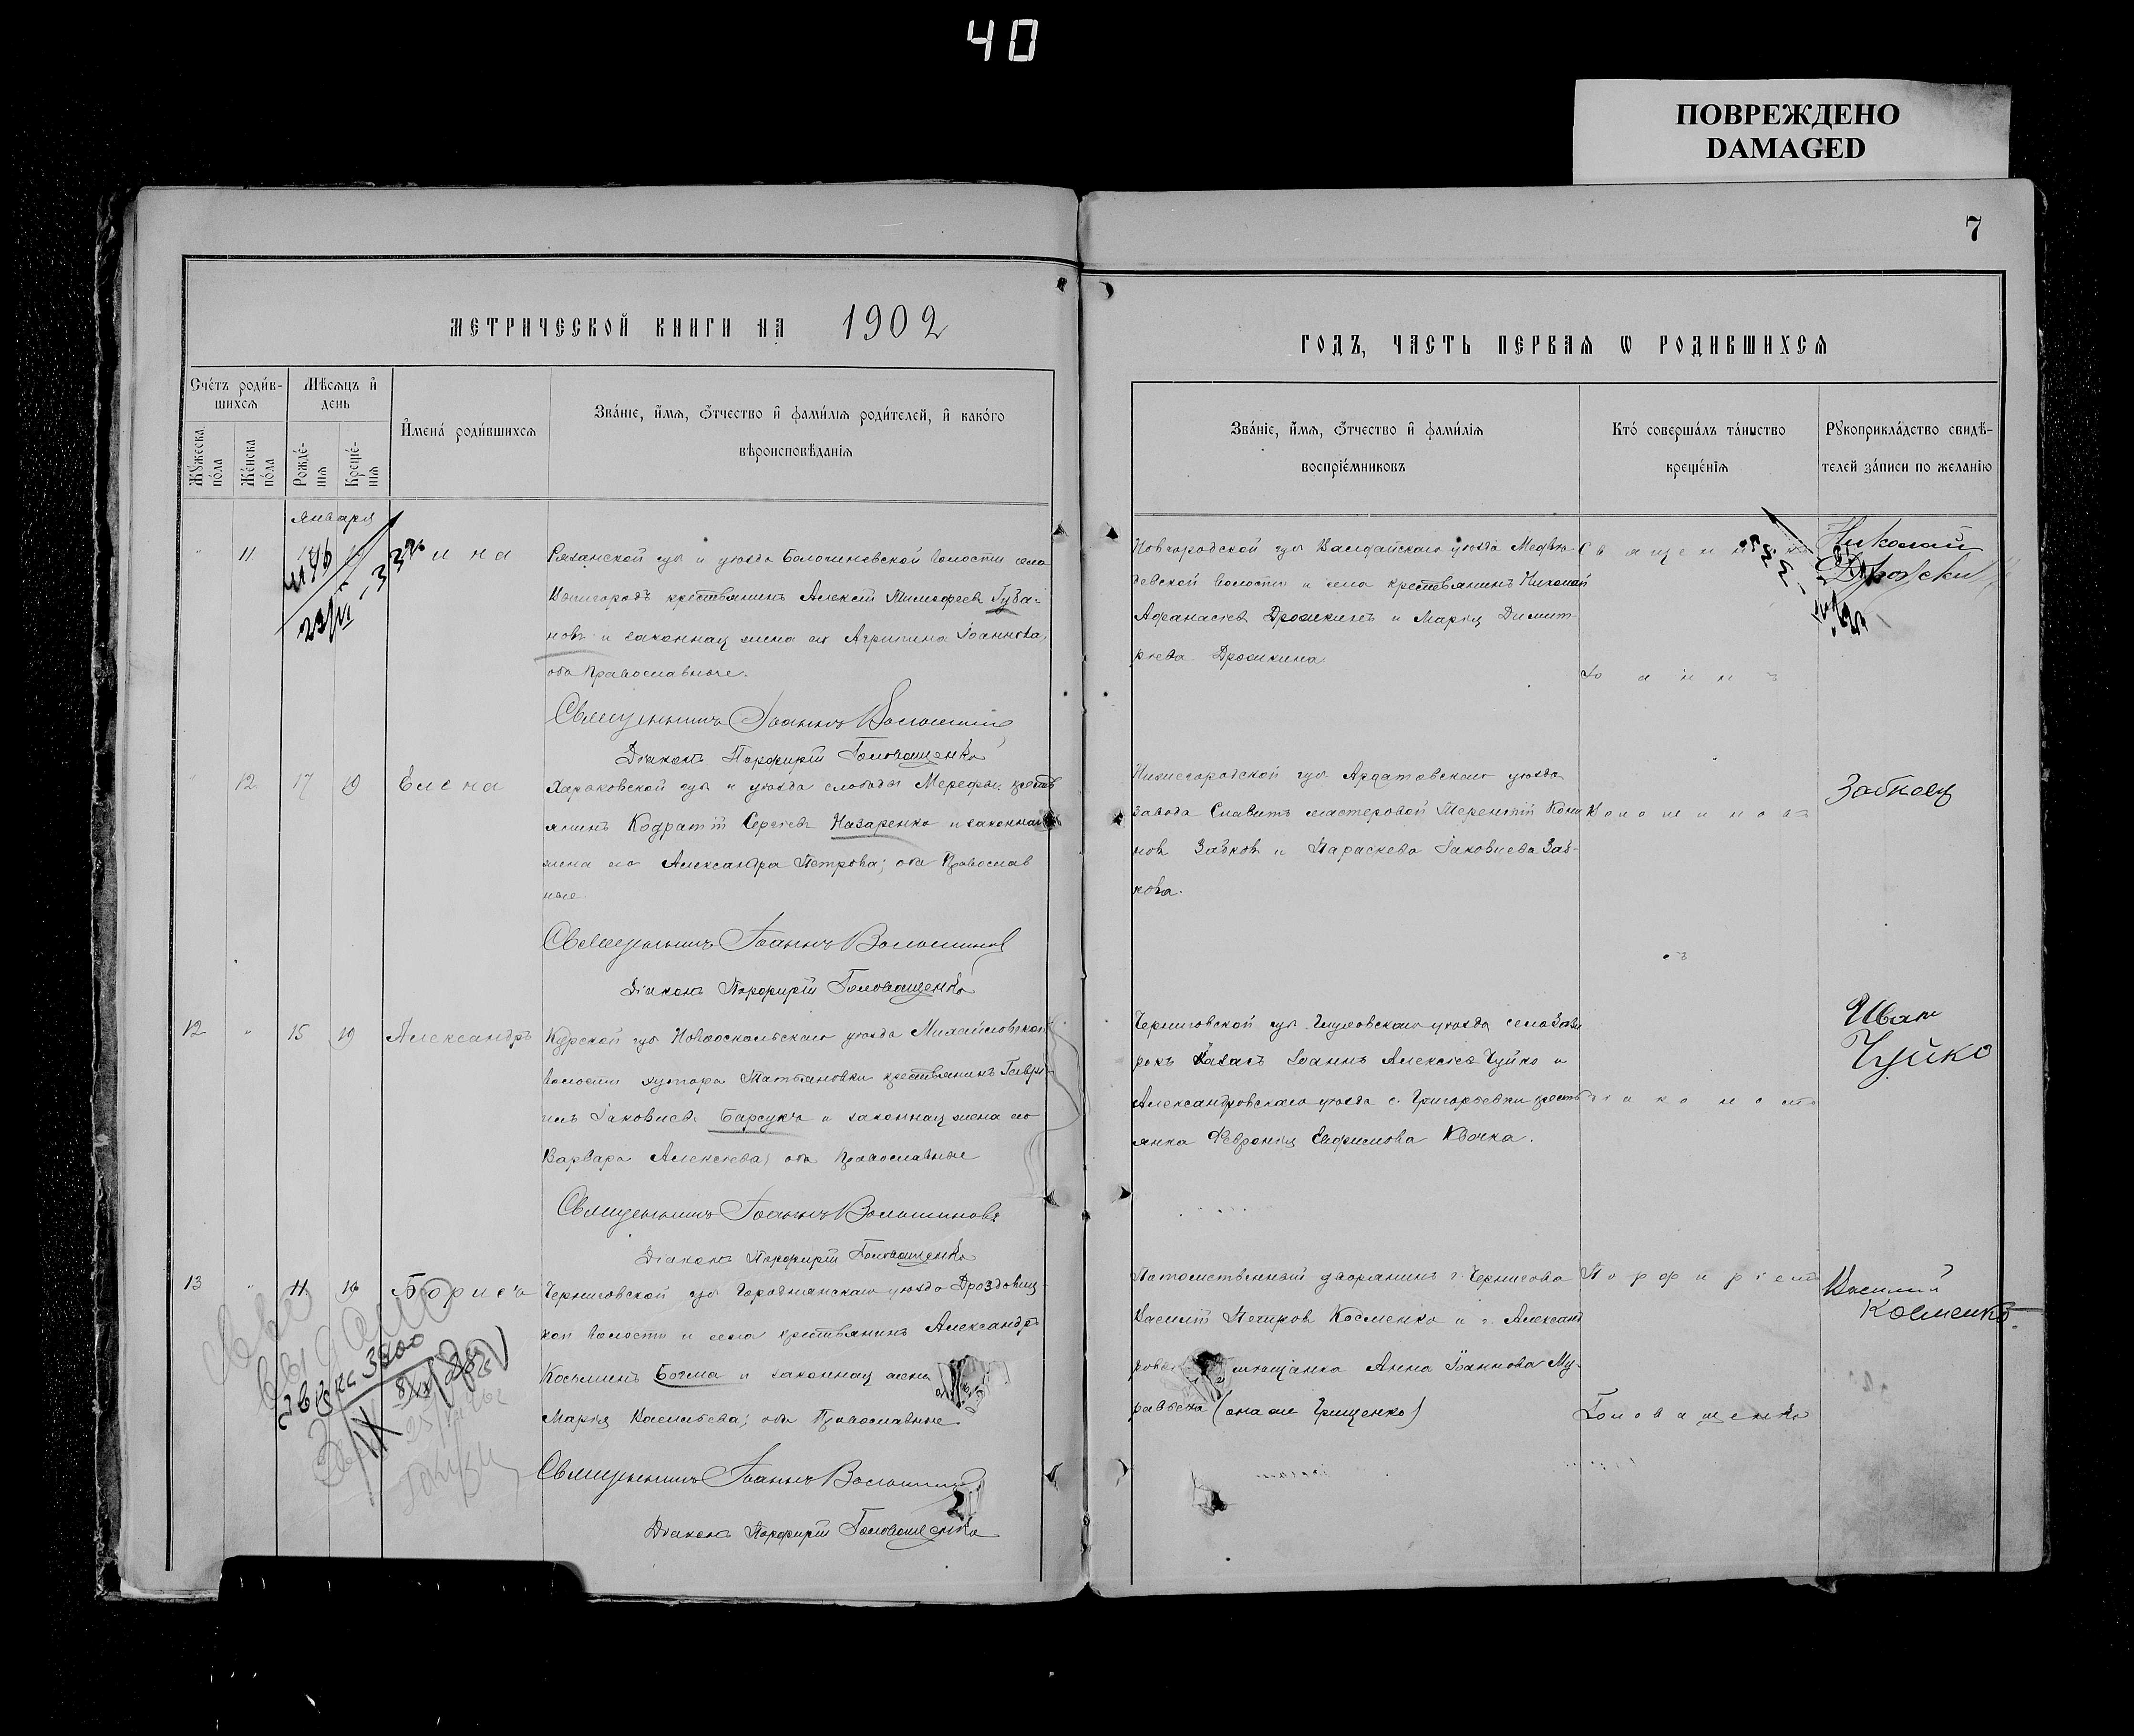 40
ПОВРЕЖДЕНО
DAMAGED
7
МЕТРИЧЕСКОЙ КНИГИ НА 1902
ГОДЪ, ЧАСТЬ ПЕРВАЯ Ѡ РОДИВШИХСЯ
Счетъ родив-
шихся
Мѣсяцъ и
день
Мужеска
пола
Женска
пола
Рожде-
нія
Креще-
нія
Имена родившихся
Званіе, имя, отчество и фамилія родителей, и какого
вѣроисповѣданія
Званіе, имя, отчество и фамилія
воспріемниковъ
Кто совершалъ таинство
крещенія
Рукоприкладство свидѣ-
телей записи по желанію
Января
11
Рязанской губ и уѣзда волости села
крестьянинъ Алексѣй Губа-
новъ и законная жена его Агрипина Іоаннова,
оба Православные.
Священникъ Іоаннъ Волошиновъ
Діаконъ Порфирій Головащенко
Новгородской губ Валдайскаго уѣзда Медвѣ-
девской волости и села крестьянинъ Николай
Афанасіевъ Дрожжинъ и Марія Димит-
ріева Дрожжина
Священникъ
Іоаннъ
Николай
12 17 19 Елена
Харьковской губ и уѣзда слободы Мерефы крестъ
янинъ Кодратій Сергіевъ Назаренко и законная
жена его Александра Петрова; оба Православ
ные
Священникъ Іоаннъ Волошиновъ
Діаконъ Порфирій Головащенко
Нижегородской губ Ардатовскаго уѣзда
завода мастеровой Терентій
новъ Забковъ и Параскева Іаковлева Заб-
кова.
Волошиновъ
Забковъ
12 " 15 19 Александръ
Курской губ Новооскольскаго уѣзда Михайловской
волости хутора Татьяновки крестьянинъ Гаврі-
илъ Іаковлевъ Барсукъ и законная жена его
Варвара Алексѣева; оба Православные
Священникъ Іоаннъ Волошиновъ
Діаконъ Порфирій Головащенко
Черниговской губ Глуховскаго уѣзда села
Казакъ Іоаннъ Алексѣевъ Чуйко и
Александровскаго уѣзда с. Григорьевки крестъ
янка Февронія Евфимова Квочка.
діакономъ
Иван
Чуйко
13 " 11 16 Борисъ
Черниговской губ Городнянскаго уѣзда Дроздовиц-
кой волости и села крестьянинъ Александръ
Косьминъ Богма и законная жена
Марія Васильева; оба Православные
Священникъ Іоаннъ Волошиновъ
Діаконъ Порфирій Головащенко
Потомственный дворянинъ г. Чернигова
Василій Петровъ Косменко и г. Александ
мѣщанка Анна Іоаннова Му-
равьева (она же Грищенко)
Порфиріемъ
Головащенко
Василий
Косменко